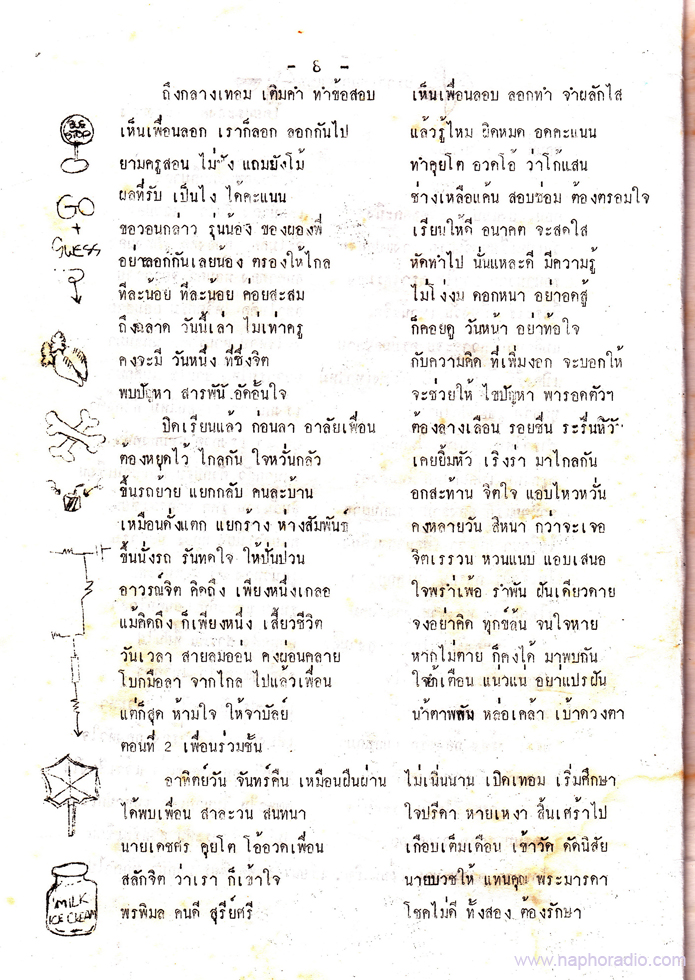 - ๖ -
ถึงกลางเทอม เติมคำ ทำข้อสอบ เห็นเพื่อนลอบ ลอกทำ จำผลักไส
BUS STOP
เห็นเพื่อนลอก เราก็ลอก ลอกกันไป แล้วรู้ไหม ผิดหมด อดคะแนน
ยามครูสอน ไม่ฟัง แถมยังโม้ ทำคุยโต อวดโอ้ ว่าโก้แสน
ผลที่รับ เป็นไง ได้คะแนน ช่างเหลือแค้น สอบซ่อม ต้องตรอมใจ
GO
+
GUESS
ขอวอนกล่าว รุ่นน้อง ของผองพี่ เรียนให้ดี อนาคต จะสดใส
อย่าลอกกันเลยน้อง ตรองให้ไกล หัดทำไป นั่นแหละดี มีความรู้
ทีละน้อย ทีละน้อย ค่อยสะสม ไม่โง่งม ดอกหนา อย่าอดสู้
ถึงฉลาด วันนี้เล่า ไม่เท่าครู ก็คอยดู วันหน้า อย่าท้อใจ
คงจะมี วันหนึ่ง ที่ซึ้งจิต กับความคิด ที่เพิ่มงอก จะบอกให้
พบปัญหา สารพัน อัดอั้นใจ จะช่วยให้ ไขปัญหา พารอดตัวฯ
ปิดเรียนแล้ว ก่อนลา อาลัยเพื่อน ต้องลางเลือน รอยชื่น ระรื่นหัว
ตองหยุดไว้ ไกลกัน ใจหวั่นกลัว เคยยิ้มหัว เริงร่า มาไกลกัน
ขึ้นรถย้าย แยกกลับ คนละบ้าน อกสะท้าน จิตใจ แอบไหวหวั่น
เหมือนดั่งแตก แยกร้าง ห่างสัมพันธ์ คงหลายวัน สีหนา กว่าจะเจอ
ขึ้นนั่งรถ รันทดใจ ให้ปั่นป่วน จิตเรรวน หวนแนบ แอบเสนอ
อาวรณ์จิต คิดถึง เพียงหนึ่งเกลอ ใจพร่ำเพ้อ รำพัน ฝันเดียวดาย
แม้คิดถึง ก็เพียงหนึ่ง เสี้ยวชีวิต จงอย่าคิด ทุกข์ล้น จนใจหาย
วันเวลา สายลมอ่อน คงผ่อนคลาย หากไม่ตาย ก็คงได้ มาพบกัน
โบกมือลา จากไกล ไปแล้วเพื่อน เตือน แน่วแน่ อย่าแปรผัน
แต่ก็สุด ห้ามใจ ให้จาบัลย์ น้ำตาพลัน หล่อเคล้า เบ้าดวงตา
ตอนที่ 2 เพื่อนร่วมชั้น
อาทิตย์วัน จันทร์คืน เหมือนฝืนผ่าน ไม่เนิ่นนาน เปิดเทอม เริ่มศึกษา
ได้พบเพื่อน สาละวน สนทนา ใจปรีดา หายเหงา สิ้นเศร้าไป
นายเดชศร คุยโต โอ้อวดเพื่อน เกือบเต็มเดือน เข้าวัด ดัดนิสัย
สลักจิต ว่าเรา ก็เข้าใจ นายบวชให้ แทนคุณ พระมารดา
MILK ICE CREAM
พรพิมล คนดี สุรีย์ศรี โชคไม่ดี ทั้งสอง ต้องรักษา
www.naphoradio.com